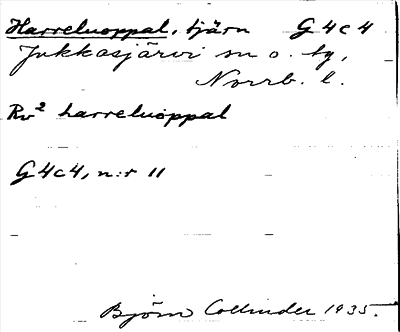 Harreluoppal, tjärn G 4 c 4
Jukkasjärvi sn o. tg,
Norrb. l.
Rv² harreluoppal
G4c4, n:r 11
Björn Collinder 1935.